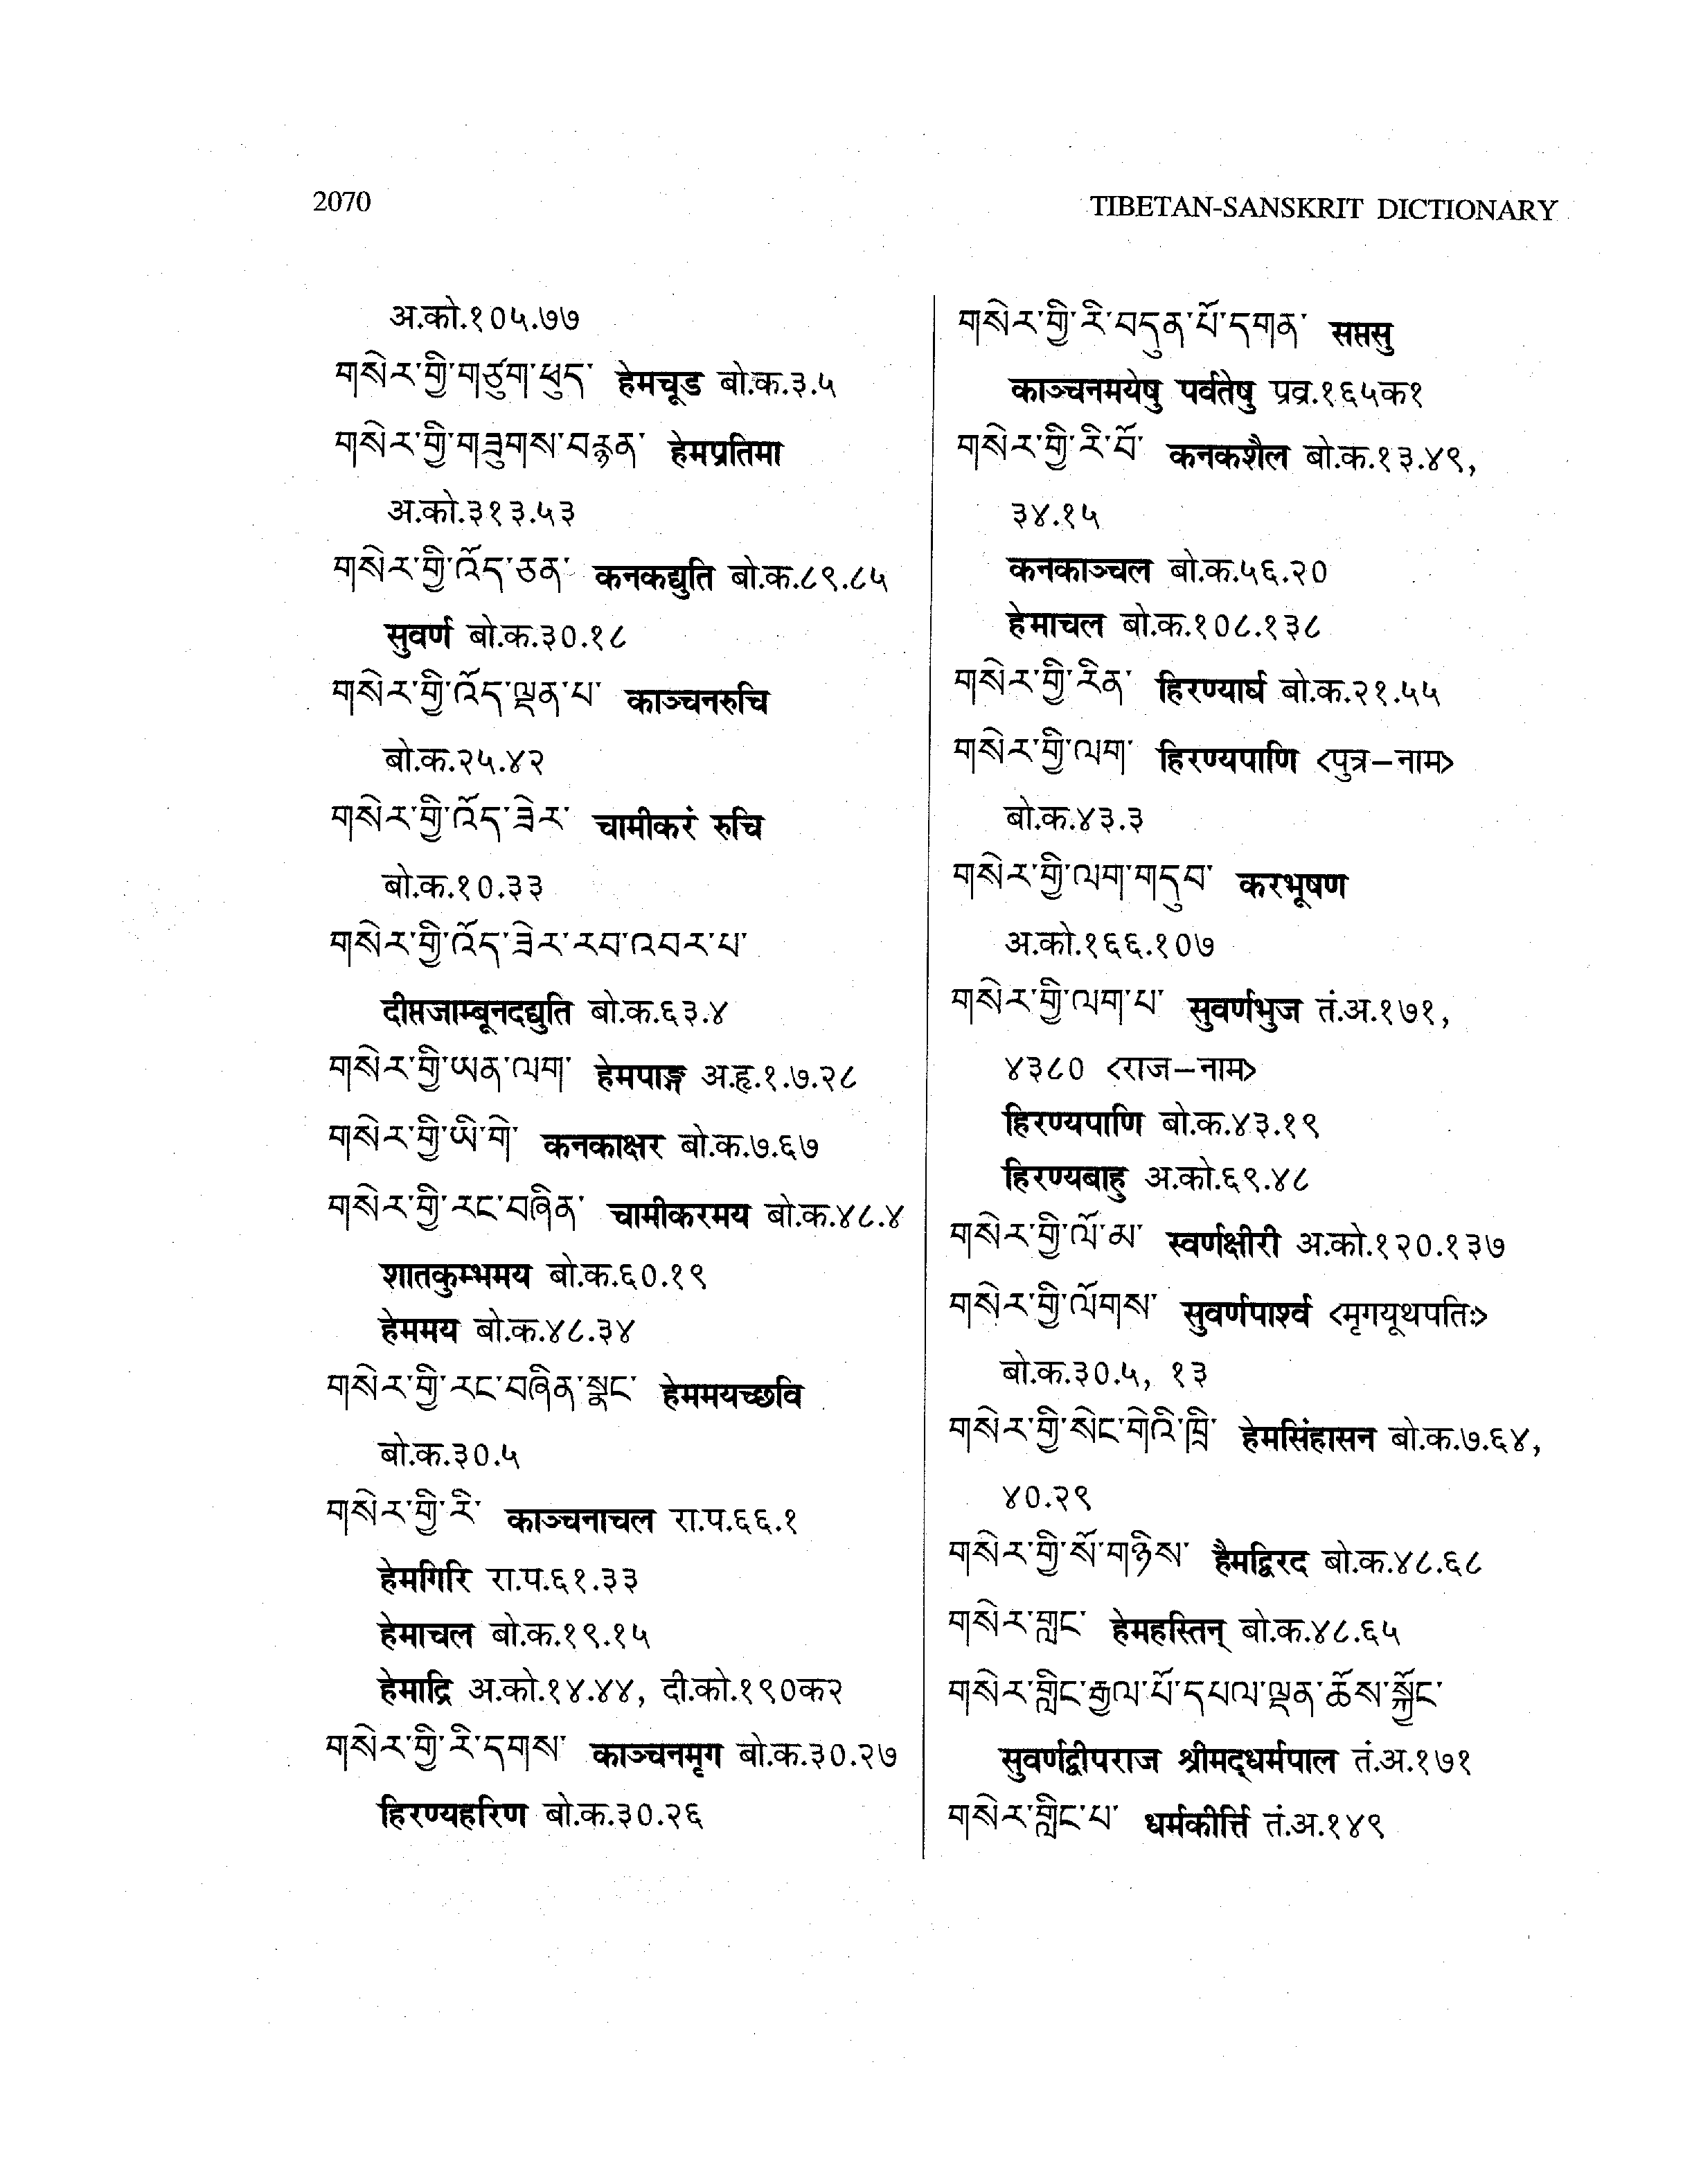 2070
TIBETAN-SANSKRIT DICTIONARY
अ.को.१०५.७७
གསེར་གྱི་གཙུག་ཕུད་ हेमचूड बो.क.३.५
གསེར་གྱི་གཟུགས་བརྙན་ हेमप्रतिमा
अ.को.३१३.५३
གསེར་གྱི་འོད་ཅན་ कनकद्युति बो.क.८९.८५
सुवर्ण बो.क.३०.१८
གསེར་གྱི་འོད་ལྡན་པ་ काञ्चनरुचि
बो.क.२५.४२
གསེར་གྱི་འོད་ཟེར་ चामीकरं रुचि
बो.क.१०.३३
གསེར་གྱི་འོད་ཟེར་རབ་འབར་པ་
दीप्तजाम्बूनदद्युति बो.क.६३.४
གསེར་གྱི་ཡན་ལག་ हेमपाङ्ग अ.हृ.१.७.२८
གསེར་གྱི་ཡི་གེ་ कनकाक्षर बो.क.७.६७
གསེར་གྱི་རང་བཞིན་ चामीकरमय बो.क.४८.४
शातकुम्भमय बो.क.६०.१९
हेममय बो.क.४८.३४
གསེར་གྱི་རང་བཞིན་སྣང་ हेममयच्छवि
बो.क.३०.५
གསེར་གྱི་རི་ काञ्चनाचल रा.प.६६.१
हेमगिरि रा.प.६१.३३
हेमाचल बो.क.१९.१५
हेमाद्रि अ.को.१४.४४, दी.को.१९०क२
གསེར་གྱི་རི་དགས་ काञ्चनमृग बो.क.३०.२७
हिरण्यहरिण बो.क.३०.२६
གསེར་གྱི་རི་བདུན་པོ་དགན་ सप्तसु
काञ्चनमयेषु पर्वतेषु प्रव्र.१६५क१
གསེར་གྱི་རི་བོ་ कनकशैल बो.क.१३.४९,
३४.१५
कनकाञ्चल बो.क.५६.२०
हेमाचल बो.क.१०८.१३८
གསེར་གྱི་རིན་ हिरण्यार्घ बो.क.२१.५५
གསེར་གྱི་ལག་ हिरण्यपाणि <पुत्र–नाम>
बो.क.४३.३
གསེར་གྱི་ལག་གདུབ་ करभूषण
अ.को.१६६.१०७
གསེར་གྱི་ལག་པ་ सुवर्णभुज तं.अ.१७१,
४३८० <राज–नाम>
हिरण्यपाणि बो.क.४३.१९
हिरण्यबाहु अ.को.६९.४८
གསེར་གྱི་ལོ་མ་ स्वर्णक्षीरी अ.को.१२०.१३७
གསེར་གྱི་ལོགས་ सुवर्णपार्श्व <मृगयूथपतिः>
बो.क.३०.५, १३
གསེར་གྱི་སེང་གེའི་ཁྲི་ हेमसिंहासन बो.क.७.६४,
४०.२९
གསེར་གྱི་སོ་གཉིས་ हैमद्विरद बो.क.४८.६८
གསེར་གླང་ हेमहस्तिन् बो.क.४८.६५
གསེར་གླིང་རྒྱལ་པོ་དཔལ་ལྡན་ཆོས་སྐྱོང་
सुवर्णद्वीपराज श्रीमद्धर्मपाल तं.अ.१७१
གསེར་གླིང་པ་ धर्मकीर्त्ति तं.अ.१४९